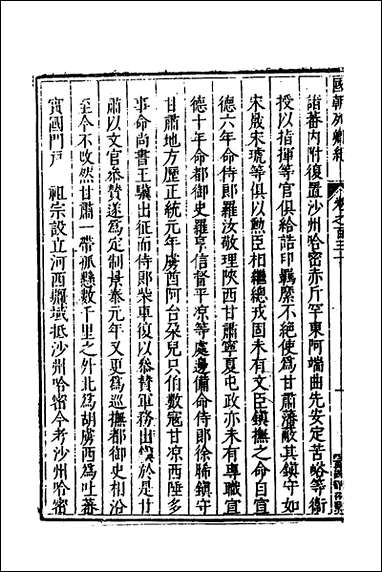 國朝列卿紀　卷之一百三十
諸蕃内附復置沙州哈密赤斤罕東阿端曲先安定苦峪等衞
授以指揮等官俱給誥印羈縻不絶使爲甘肅藩蔽其鎮守如
宋晟宋琥等俱以勳臣相繼總戎固未有文臣鎮撫之命自宣
德六年命侍郎羅汝敬理陝西甘肅寧夏屯政亦未有專職宣
德十年命都御史羅亨信督平凉等處邊備命侍郎徐晞鎮守
甘肅地方歷正統元年虜酋阿台朶兒只伯數寇甘凉西陲多
事命尚書王驥出征而侍郎柴車復以叅賛軍務出於是甘
肅以文官叅賛遂爲定制景泰元年又更爲巡撫都御史相沿
至今不改然甘肅一帶孤懸數千里之外北爲胡虜西爲吐蕃
實國門戸　祖宗設立河西疆域抵沙州哈密今考沙州哈密